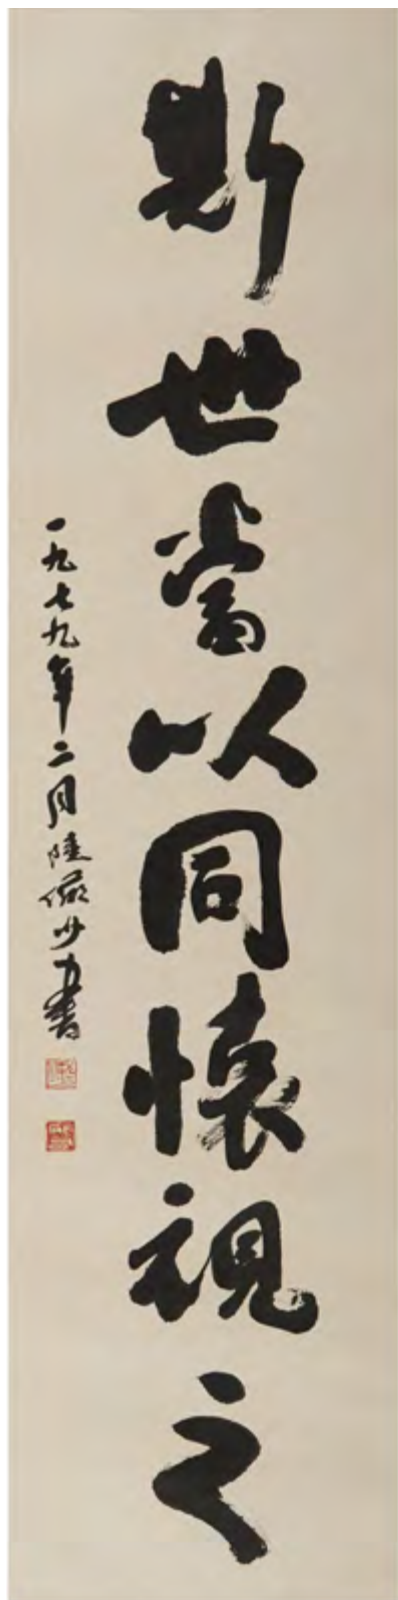 斯世當以同懷視之
一九七九年二月陸儼少書